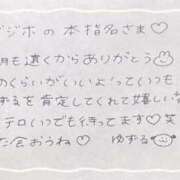 ジホの本指名さま♡
月も遠くからありがとう
のくらいがいいよっていつも
ずるを肯定してくれて嬉しい
テロいつでも待ってます♡笑
た会おうね♡ ゆずる